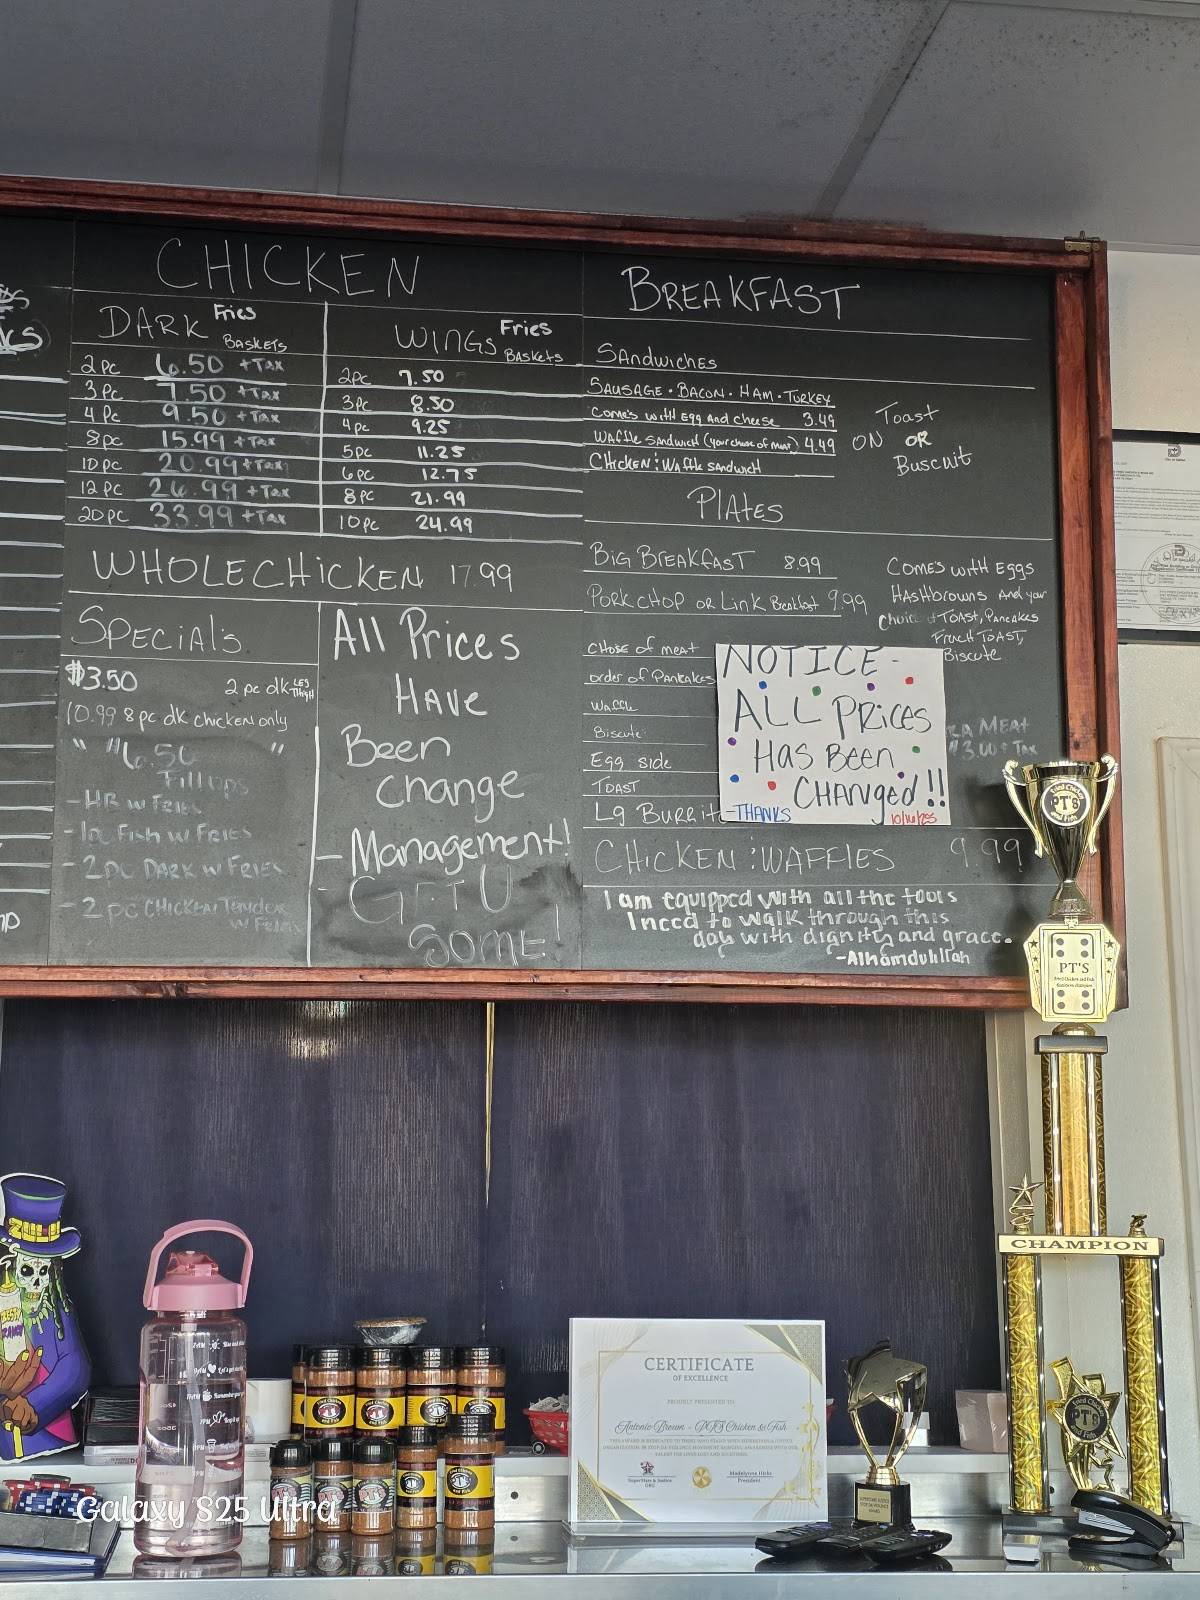 CHICKEN
DARK Fries BASKETS
2 PC 6.50 +TAX
3 PC 7.50 +TAX
4 PC 9.50 +TAX
8pc 15.99 +TAX
10 PC 20.99 +TAX
12 PC 26.99 +TAX
20 PC 33.99 +TAX
WINGS Fries BASKETS
2pc 7.50
3pc 8.50
4pc 9.25
5pc 11.25
6pc 12.75
8pc 21.99
10pc 24.99
WHOLE CHICKEN 17.99
SPECIALS
$3.50 2 pc dk LEG THIGH
10.99 8 pc dk chicken only
" $6.50 "
Fillups
- HB w FRIES
- 1pc Fish w FRIES
- 2 PC DARK w FRIES
- 2 pc CHICKEN Tender
w Fries
All Prices
HAVE
Been
change
- Management!
- GET U
SOME!
BREAKFAST
SANdwicHes
SAUSAGE · BACON · HAM · TURKEY
Comes with Egg And cheese 3.49
Waffle sandwich (your chose of meat) 4.49
CHICKEN & WAffle sandwich
ON Toast
OR
Buscuit
PLATES
BIG BREAKFAST 8.99
PORK CHOP OR LINK Breakfast 9.99
COMES with EGGS
HASHbrowns And your
Choice of TOAST, Pancakes
French TOAST,
Biscute
CHOSE of meat
order of Pankakes
Waffle
Biscute
Egg side
TOAST
Lg Burrito
RA MEAT
$3.00 + Tax
NOTICE -
ALL PRICES
HAS BEEN
CHANGED!!
-THANKS 10/16/25
CHICKEN & WAFFLES 9.99
I am equipped with all the tools
I need to walk through this
day with dignity and grace.
-Alhamdulillah
PT'S
Fried Chicken
and Fish
PT'S
CHAMPION
ZULU
CERTIFICATE
OF EXCELLENCE
PROUDLY PRESENTED TO
Antonio Brown - PT'S Chicken & Fish
SuperStars 4 Justice
ORG
Madelynne Hicks
President
PT'S
Galaxy S25 Ultra